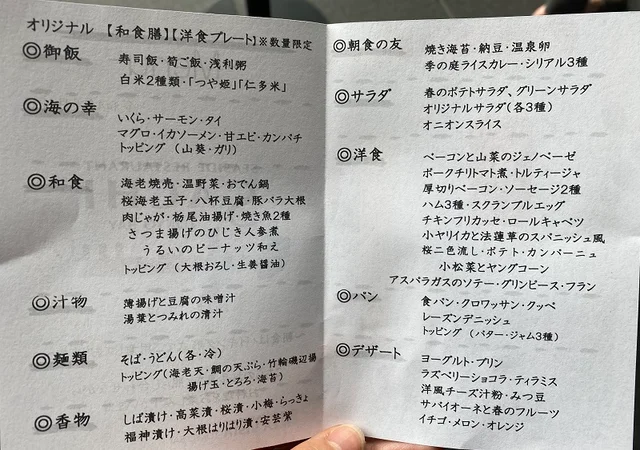 オリジナル 【和食膳】【洋食プレート】※数量限定
◎御飯 寿司飯・筍ご飯・浅利粥
白米2種類・「つや姫」「仁多米」
◎海の幸 いくら・サーモン・タイ
マグロ・イカソーメン・甘エビ・カンパチ
トッピング (山葵・ガリ)
◎和食 海老焼売・温野菜・おでん鍋
桜海老玉子・八杯豆腐・豚バラ大根
肉じゃが・栃尾油揚げ・焼き魚2種
さつま揚げのひじき人参煮
うるいのピーナッツ和え
トッピング (大根おろし・生姜醤油)
◎汁物 薄揚げと豆腐の味噌汁
湯葉とつみれの清汁
◎麺類 そば・うどん(各・冷)
トッピング(海老天・鯛の天ぷら・竹輪磯辺揚
揚げ玉・とろろ・海苔)
◎香物 しば漬け・高菜漬・桜漬・小梅・らっきょ
福神漬け・大根はりはり漬・安芸紫
◎朝食の友 焼き海苔・納豆・温泉卵
季の庭ライスカレー・シリアル3種
◎サラダ 春のポテトサラダ、グリーンサラダ
オリジナルサラダ(各3種)
オニオンスライス
◎洋食 ベーコンと山菜のジェノベーゼ
ポークチリトマト煮・トルティージャ
厚切りベーコン・ソーセージ2種
ハム3種・スクランブルエッグ
チキンフリカッセ・ロールキャベツ
小ヤリイカと法蓮草のスパニッシュ風
桜二色流し・ポテト・カンパーニュ
小松菜とヤングコーン
アスパラガスのソテー・グリンピース・フラン
◎パン 食パン・クロワッサン・クッペ
レーズンデニッシュ
トッピング (バター・ジャム3種)
◎デザート ヨーグルト・プリン
ラズベリーショコラ・ティラミス
洋風チーズ汁粉・みつ豆
サバイオーネと春のフルーツ
イチゴ・メロン・オレンジ